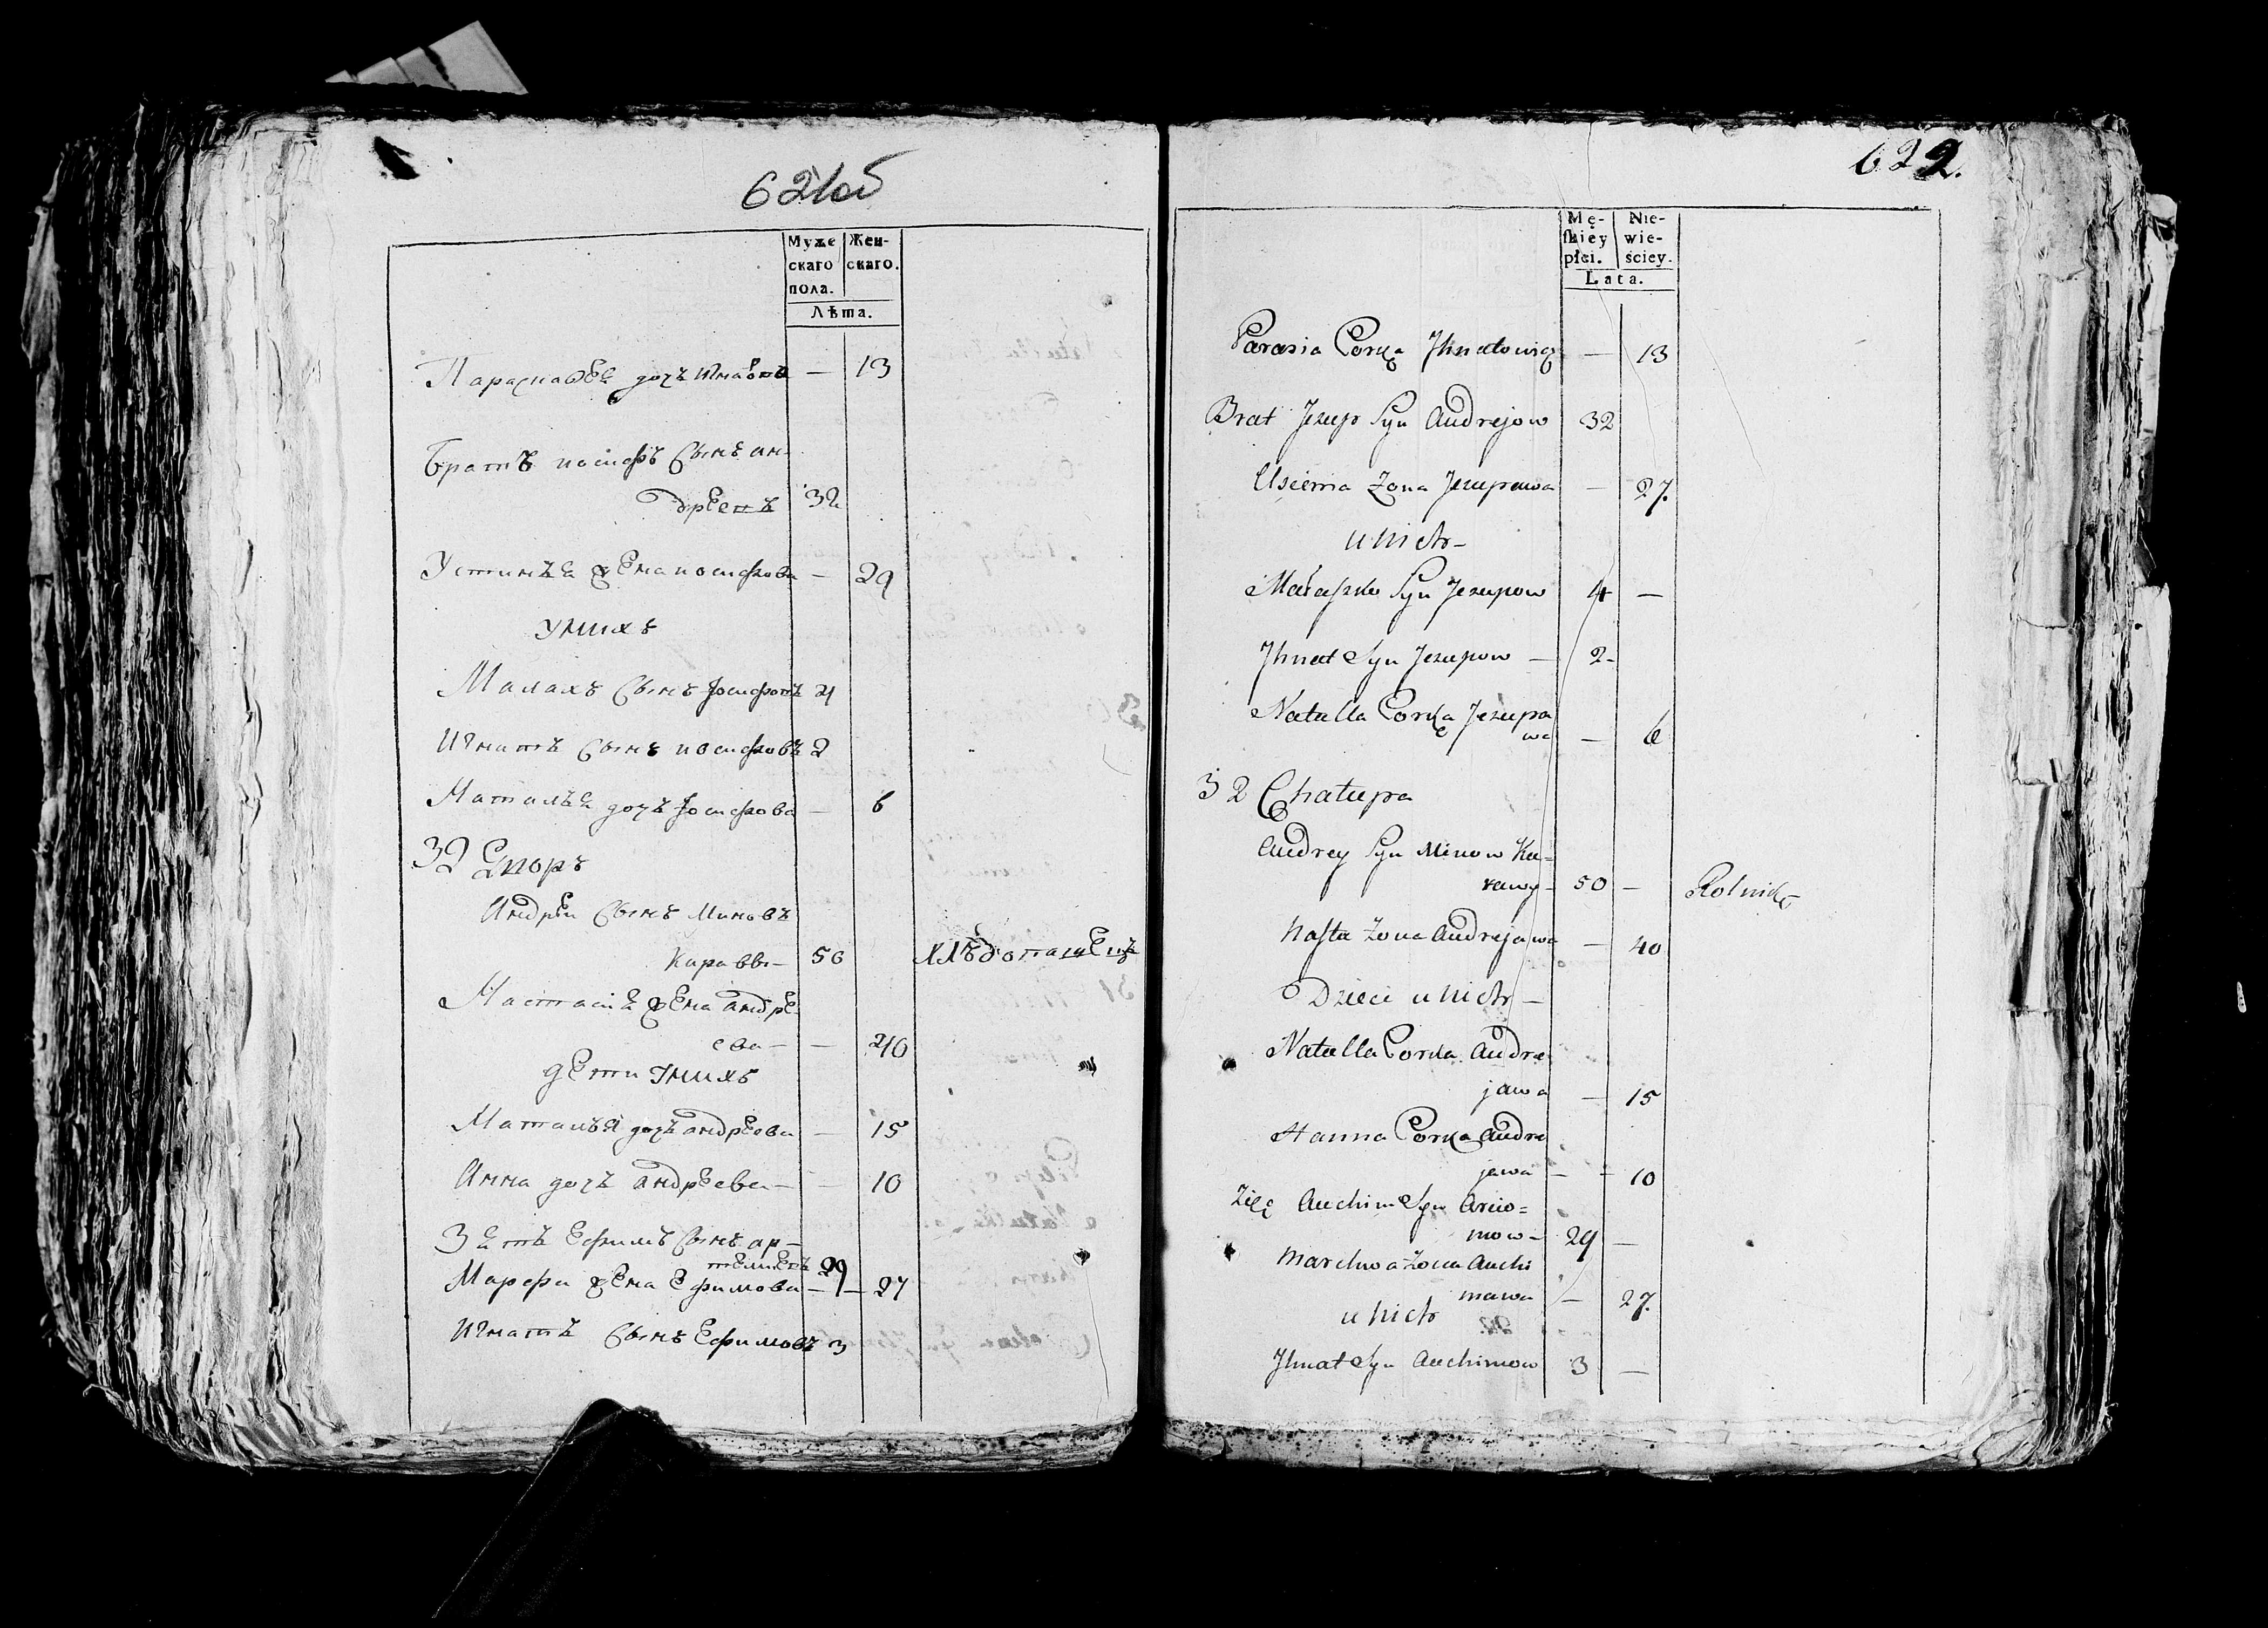 621об
Муже Жен-
скаго скаго.
пола.
Лѣта.
Параскавея дочь Игнатова — 13
Братъ иосифъ Сынъ ан-
дреевъ 32
Устинья жена иосифова — 29
У нихъ
Малахъ Сынъ Иосифовъ 4
Игнатъ Сынъ иосифовъ 2
Наталья дочь Иосифова — 6
32 Дворъ
Андрей Сынъ Миновъ
Каравы — 50 хлѣбопашецъ
Настасія жена андре
ева — — 40
дети У нихъ
Наталья дочь андреева — 15
Анна дочь андреева — — 10
Зять Ефимъ Сынъ ар-
темиевъ 29
Марфа жена Ефимова — — 27
Игнатъ Сынъ Ефимовъ 3
622.
Mę- Nie-
ſkiey wie-
płci. ściey.
Lata.
Parasia Corka Ihnatowa — 13
Brat Jezup Syn Andrejow 32
Uscinia Zona Jezupowa — 27.
u nich —
Małaszko Syn Jezupow 4 —
Ihnat Syn Jezupow — 2 -
Natalla Corka Jezupo
wa — 6
32 Chałupa
Andrey Syn Minow Ka=
rawy — 50 — Rolnik
Nasta Zona Andrejowa — 40
Dzieci u nich —
Natalla Corka Andre
jawa — 15
Hanna Corka Andre
jawa — - 10
Zięć Auchim Syn Arcio=
mow — 29 —
Marchwa Zona Auchi
mawa — 27.
u nich
Ihnat Syn Auchimow 3 —